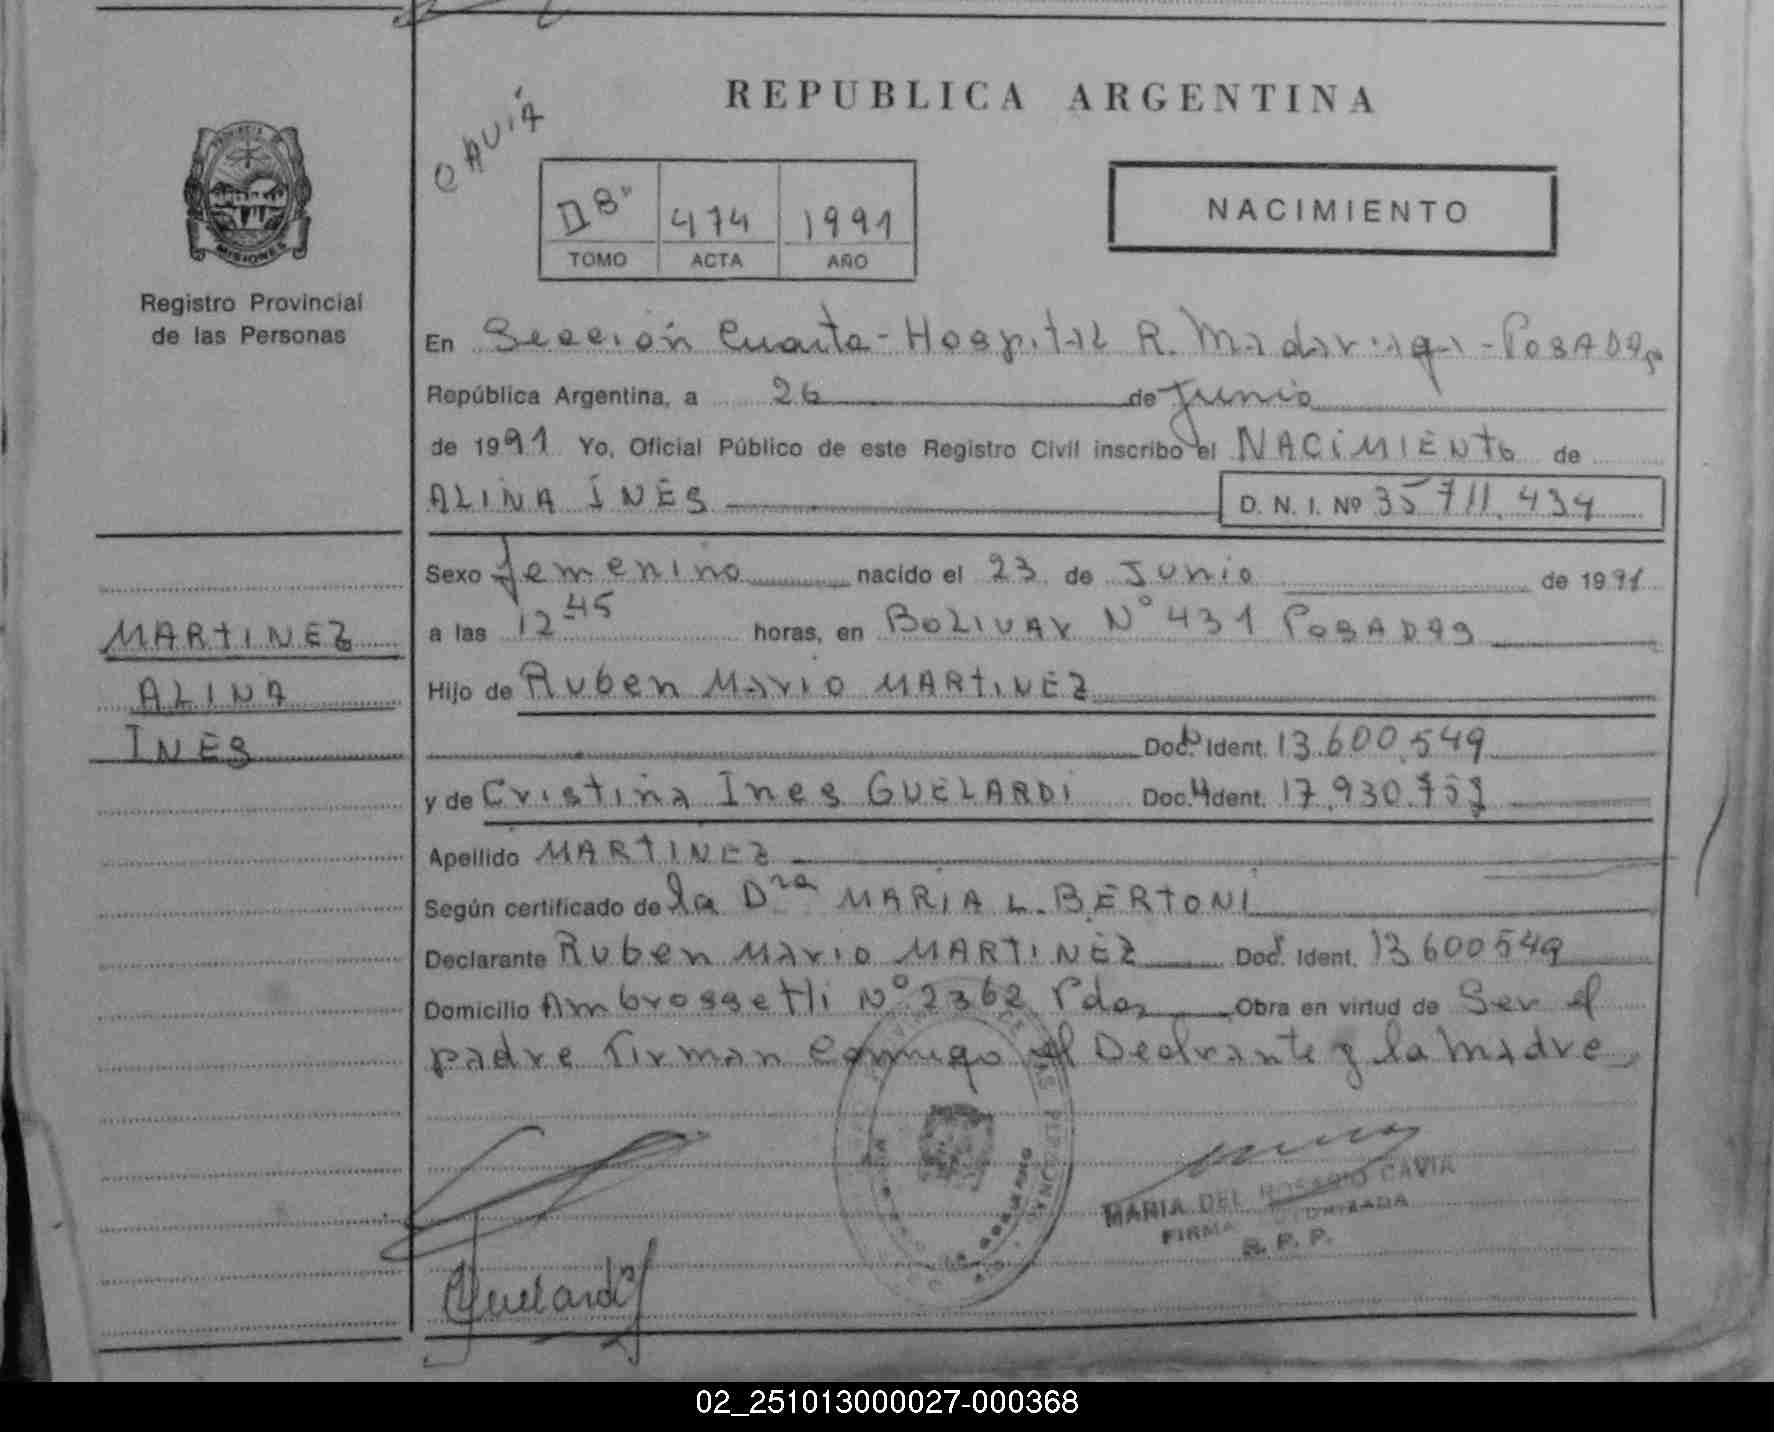 REPUBLICA ARGENTINA
CAVIA
474 1991
TOMO ACTA AÑO
NACIMIENTO
MISIONES
Registro Provincial
de las Personas
En Sección Cuarta - Hospital R. Madariaga - POSADAS
República Argentina, a 26 de Junio
de 1991 Yo, Oficial Público de este Registro Civil inscribo el NACIMIENTO de
ALINA INES D. N. I. Nº 35 711.434
Sexo femenino nacido el 23 de Junio de 1991
a las 12 45 horas, en BOLIVAR Nº 431 POSADAS
MARTINEZ
ALINA
INES
Hijo de Ruben Mario MARTINEZ
Doc. Ident. 13.600.549
y de Cristina Ines GUELARDI Doc. Ident. 17.930.
Apellido MARTINEZ
Según certificado de la Dra MARIA L. BERTONI
Declarante Ruben Mario MARTINEZ Doc. Ident. 13600549
Domicilio Ambrossetti Nº 2362 Pdas Obra en virtud de Ser el
padre Firman Conmigo el Declrante y la Madre
MARIA DEL ROSARIO CAVIA
FIRMA AUTORIZADA
R. P. P.
Guelardi
02_251013000027-000368